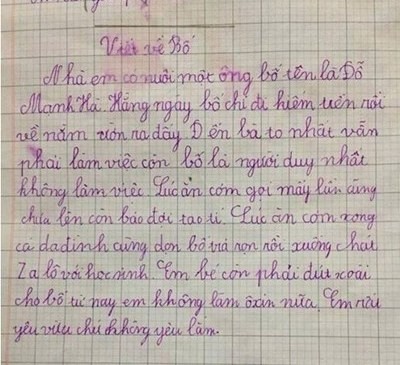 Viết về Bố
Nhà em có nuôi một ông bố tên là Đỗ
Mạnh Hà. Hằng ngày bố chỉ đi kiếm tiền rồi
về nằm ườn ra đấy Đến bà to nhất vẫn
phải làm việc còn bố là người duy nhất
không làm việc. Lúc ăn cơm gọi mấy lần cũng
chưa lên còn bảo đợi tao tí. Lúc ăn cơm xong
cả da đình cùng dọn bố và rọn rồi xuống chát
Za lô với học sinh. Em bé còn phải đút xoài
cho bố từ nay em không làm ôxin nữa. Em rêu
yêu vừa chứ không yêu lắm.